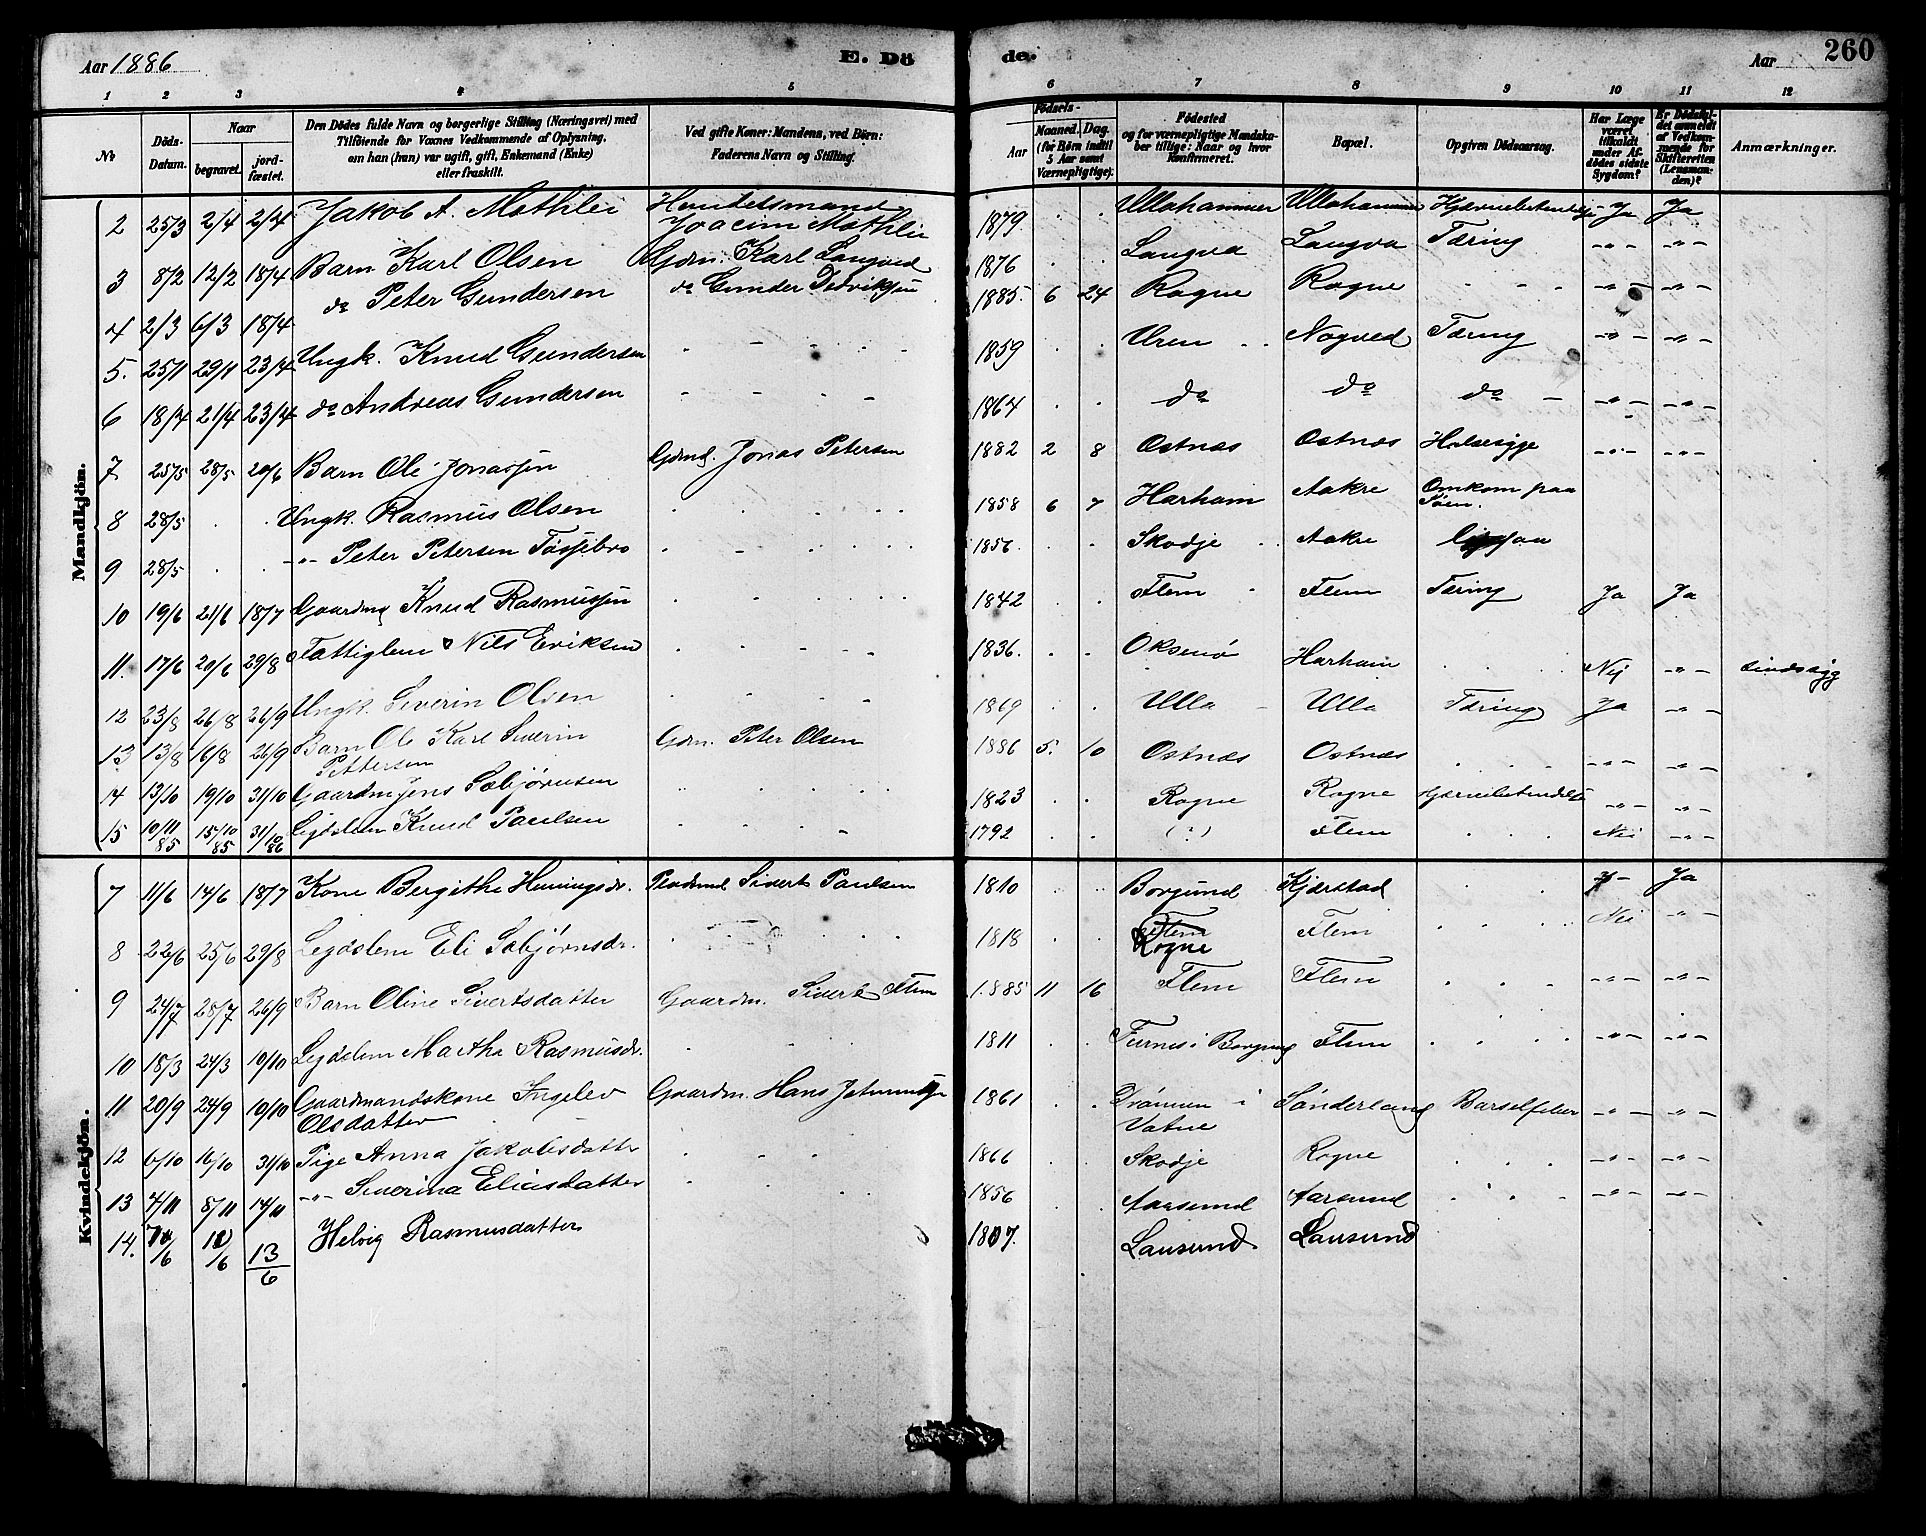 Aar 1886
E. Dö
de.
Aar
260
1 2 3 4 5 6 7 8 9 10 11 12
No
Döds-Datum.
Naar
begravet.
jord-fæstet.
Den Dödes fulde Navn og borgerlige Stilling (Næringsvei) med
Tilföiende for Voxnes Vedkommende af Oplysning,
om han (hun) var ugift, gift, Enkemand (Enke)
eller fraskilt.
Ved gifte Koner: Mandens, ved Börn:
Faderens Navn og Stilling.
Födsels-
Aar
Maaned. Dag.
(for Börn indtil
5 Aar samt
Værnepligtige).
Födested
og for værnepligtige Mandska-
ber tillige: Naar og hvor
konfirmeret.
Bopæl.
Opgiven Dödsaarsag.
Har Læge
været
tilkaldt
under Af-
dödes sidste
Sygdom?
Er Dödsfal-
det anmeldt
af Vedkom-
mende for
Skifteretten
(Lensman-
den)?
Anmærkninger.
Mandkjön.
2 25/3 2/4 2/4 Jakob A. Mathlei Handelsmand Joacim Mathlei 1879 . . Ullahammer Ullahammer Hjernebetændelse Ja Ja
3 8/2 12/2 18/4 Barn Karl Olsen Gdm. Karl Langved 1876 . . Langva Langva Tæring -"- -"-
4 2/3 6/3 18/4 do Peter Gundersen do Gunder Didriksen 1885 6 24 Rogne Rogne . . . -"- -"-
5. 25/1 29/1 23/4 Ungk. Knud Gundersen 1859 . . Uren Nogved Tæring -"- -"-
6 18/4 21/4 23/4 do Andreas Gundersen 1864 . . do do do -"- -"-
7 25/5 28/5 20/6 Barn Ole Jonassen Gdmd. Jonas Petersen 1882 2 8 Østnæs Østnæs Halsesyge -"- -"-
8 28/5 . . Ungk. Rasmus Olsen 1858 6 7 Harham Aakre Omkom paa Søen.
9 28/5 . . -"- Peter Petersen Fossebro 1856 . . Skodje Aakre ligesaa
10 19/6 21/6 18/7 Gaardmd Knud Rasmussen 1842 . . Flem Flem Tæring Ja Ja
11. 17/6 20/6 29/8 Fattiglem Nils Eriksen 1836. . . Oksenø Harham . . Nei -"- Sindssyg
12 23/8 26/8 26/9 Ungk. Severin Olsen 1869 . . Ulla Ulla Tæring Ja -"-
13 13/8 16/8 26/9 Barn Ole Karl Severin Pettersen Gdm. Peter Olsen 1886 5. 10 Østnæs Østnæs . . . -"- -"-
14 13/10 19/10 31/10 Gaardm Jens Sæbjørnsen 1823 . . Rogne Rogne Hjernebetændelse -"- -"-
15 10/11 85 15/10 85 31/10 86 Legdslem Knud Paulsen 1792 . . (?) Flem . . . Nei -"-
Kvindekjön.
7 11/6 14/6 18/7 Kone Bergithe Henningsdr. Sivert Paulsen 1810 . . Borgund Kjærstad . . Ja
8 22/6 25/6 29/8 Legdslem Eli Sæbjørnsdr. 1818 . . Flem Rogne Flem . . . Nei -"-
9 24/7 28/7 26/9 Barn Oline Sivertsdatter Gaardm. Sivert Flem 1885 11 16 Flem Flem . . . -"- -"-
10 18/3 24/3 10/10 Legdslem Martha Rasmusdr. 1811 . . Furnes i Borgund Flem . . . -"- -"-
11 20/9 24/9 10/10 Gaardmandskone Ingelev Olsdatter Gaardm. Hans Johannesen 1861 . . Drønnen i Vatne Sønderland Barselfeber -"- -"-
12 6/10 16/10 31/10 Pige Anna Jakobsdatter 1866 Skodje Rogne . . . -"- -"-
13 4/11 8/11 14/11 -"- Severina Eliasdatter 1856 Aarsund Aarsund . . . -"- -"-
14. 7/6 11/6 13/6 Helvig Rasmusdatter 1807. Lausund. Lausund